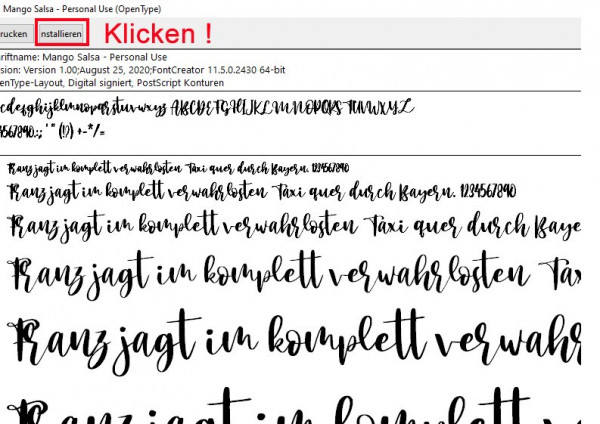 Mango Salsa - Personal Use (OpenType)
rucken nstallieren Klicken !
hriftname: Mango Salsa - Personal Use
sion: Version 1.00;August 25, 2020;FontCreator 11.5.0.2430 64-bit
enType-Layout, Digital signiert, PostScript Konturen
cdefghijklmnopqrstuvwxyz ABCDEFGHIJKLMNOPQRSTUVWXYZ
4567890.:,; ' " (!?) +-*/=
Franz jagt im komplett verwahrlosten Taxi quer durch Bayern. 1234567890
Franz jagt im komplett verwahrlosten Taxi quer durch Bayern. 1234567890
Franz jagt im komplett verwahrlosten Taxi quer durch Baye
Franz jagt im komplett verwahrlosten Tax
Franz jagt im komplett verwahr
Franz jagt im komplett